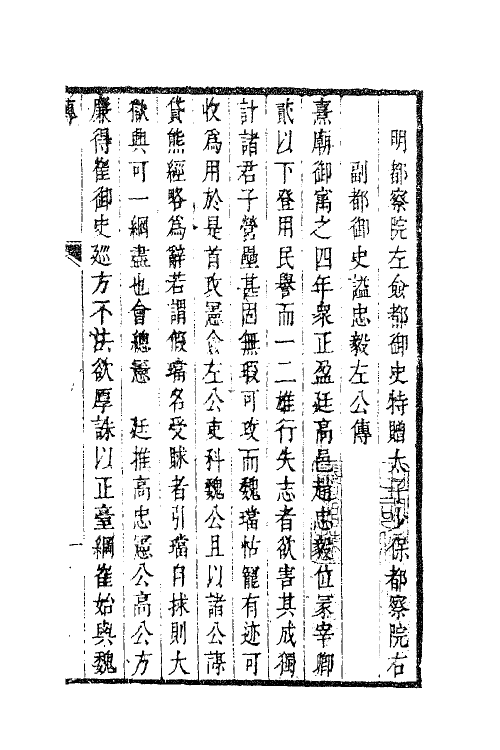 明都察院左僉都御史特贈太子少保都察院右
副都御史謚忠毅左公傳
熹廟御寓之四年衆正盈廷高邑趙忠毅位冢宰卿
貳以下登用民譽而一二雄行失志者欲害其成獨
計諸君子營壘甚固無瑕可攻而魏璫怙寵有迹可
收為用於是首攻憲僉左公吏科魏公且以諸公謗
貸熊經略為辭若謂假璫名受賕者引璫自抹則大
獄興可一網盡也會總憲 廷推高忠憲公高公方
廉得崔御史巡方不法欲厚誅以正臺綱崔始與魏
傳
一